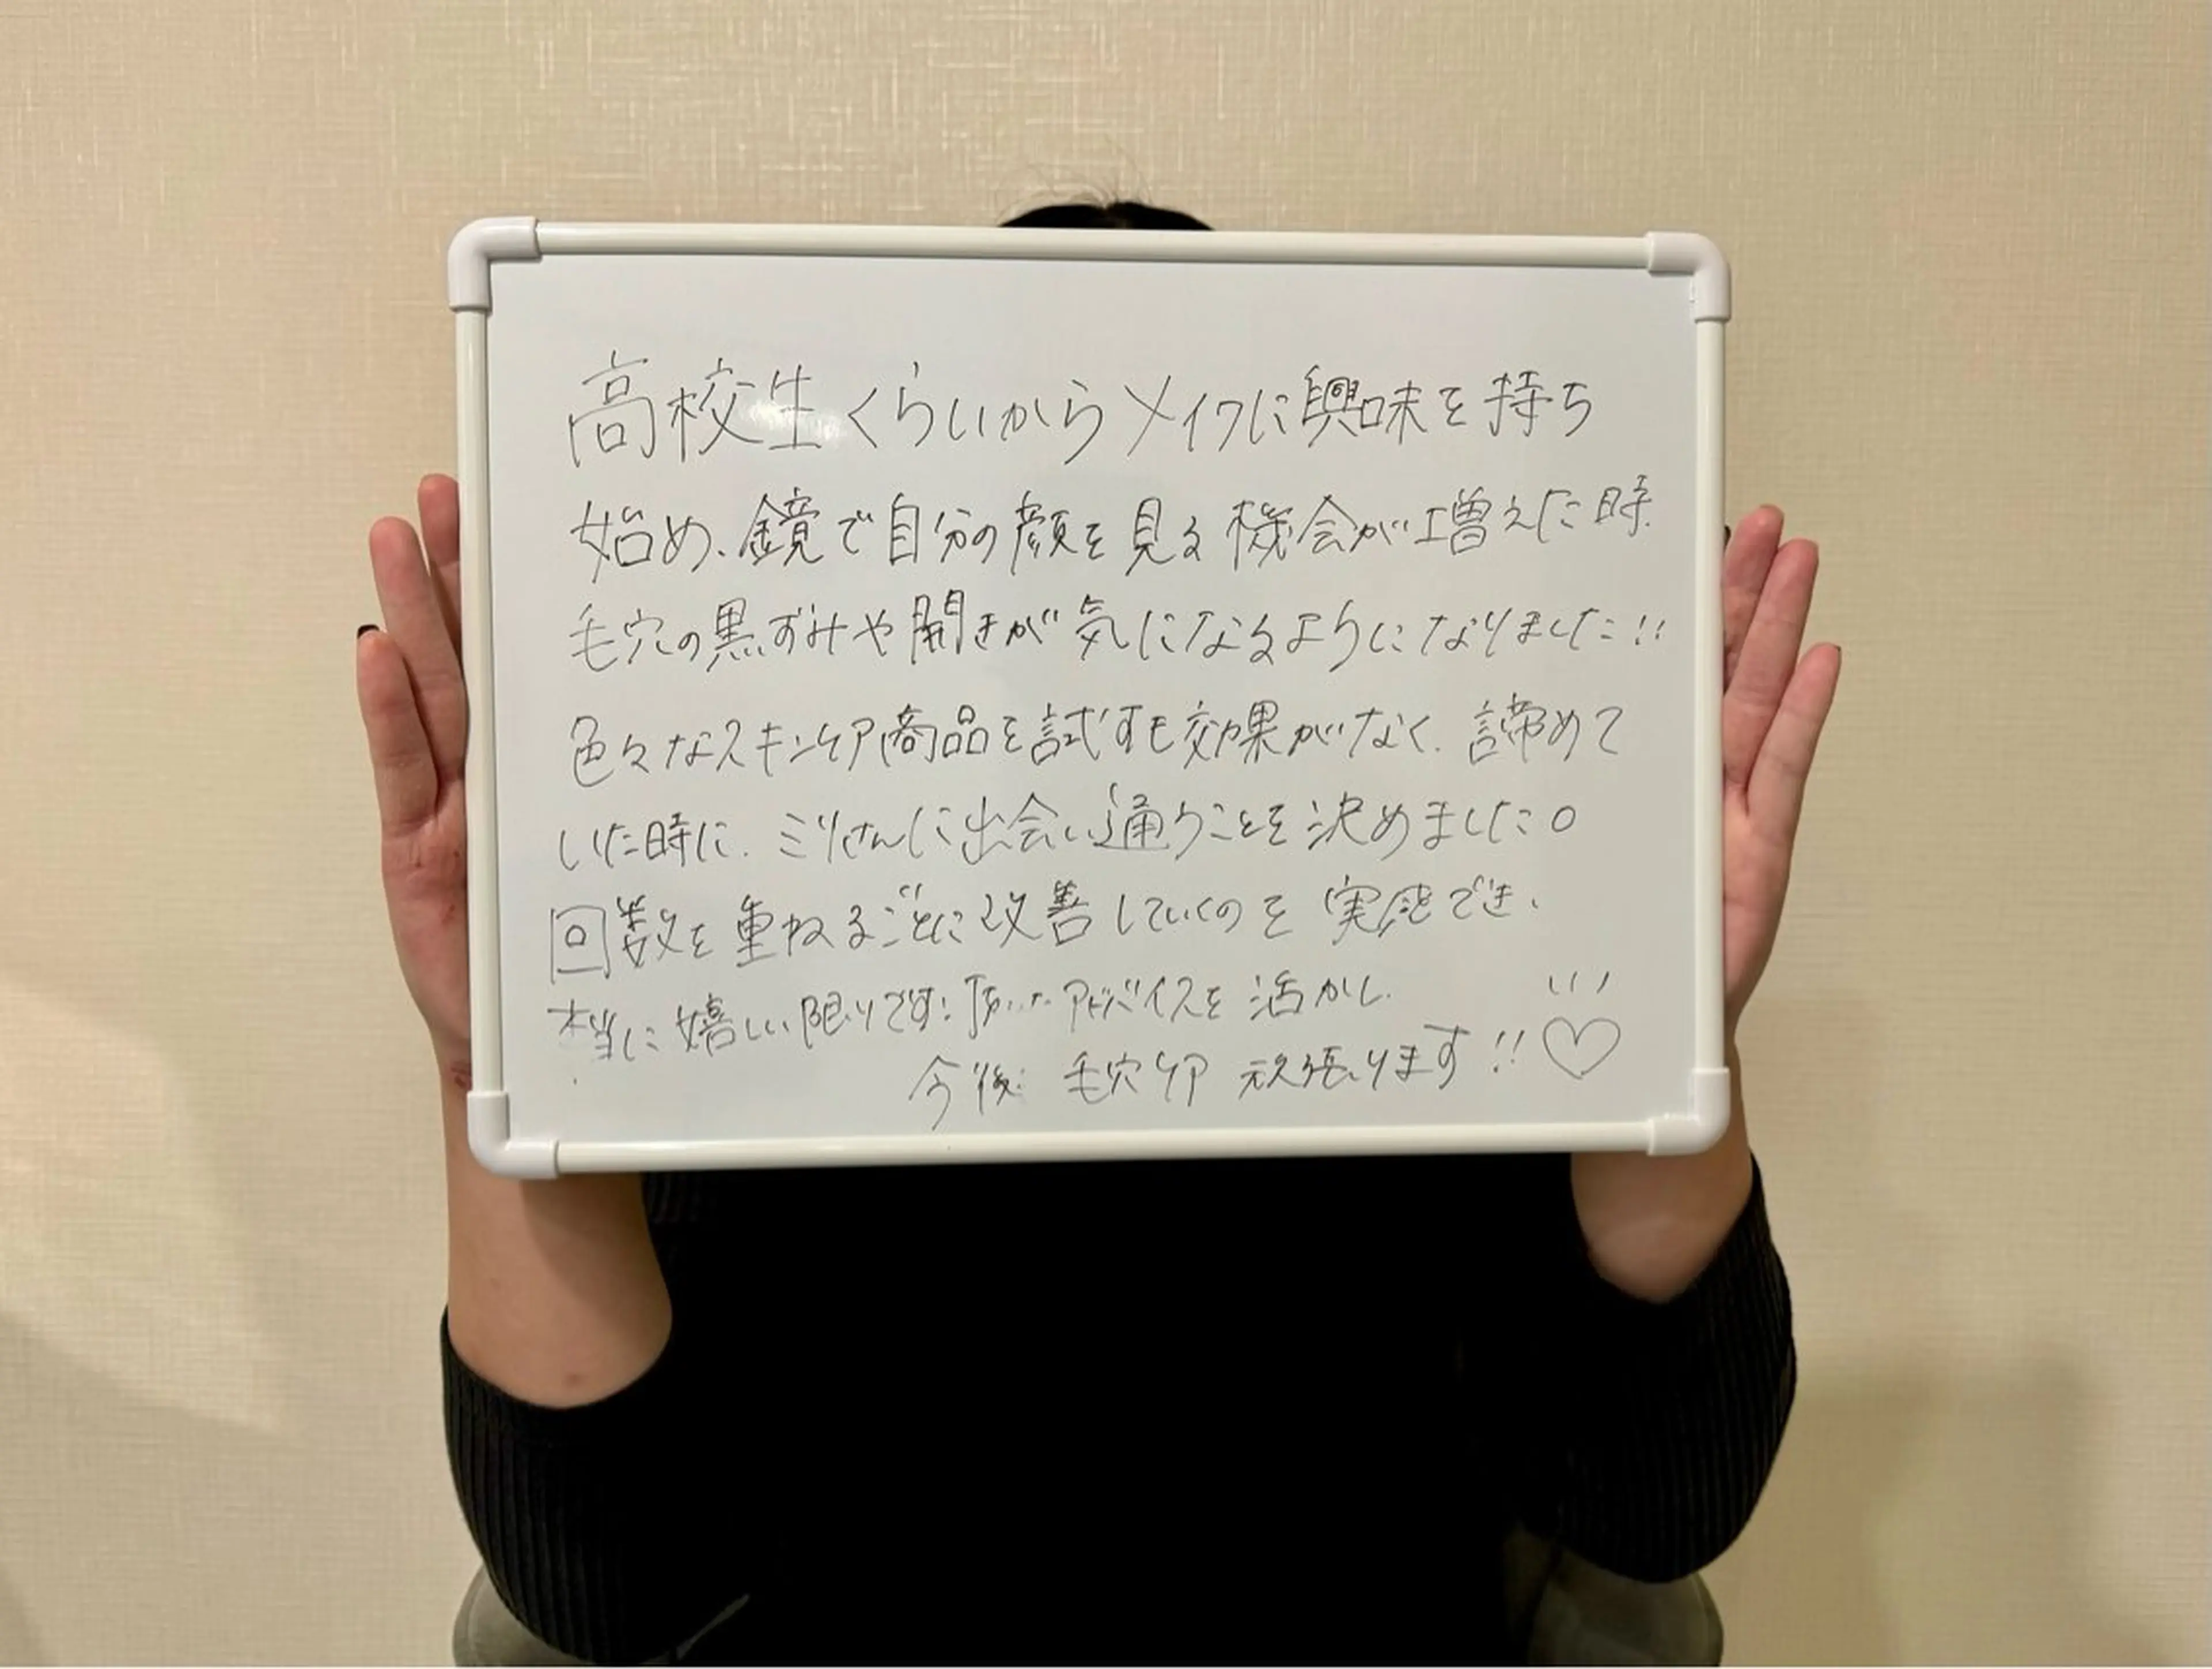 高校生くらいからメイクに興味を持ち
始め、鏡で自分の顔を見る機会が増えた時、
毛穴の黒ずみや開きが気になるようになりました!!
色々なスキンケア商品を試すも効果がなく、諦めて
いた時に、ミリさんに出会い通うことを決めました。
回数を重ねるごとに改善していくのを実感でき、
本当に嬉しい限りです! アドバイスを活かし、
今後 毛穴ケア 頑張ります!!♡